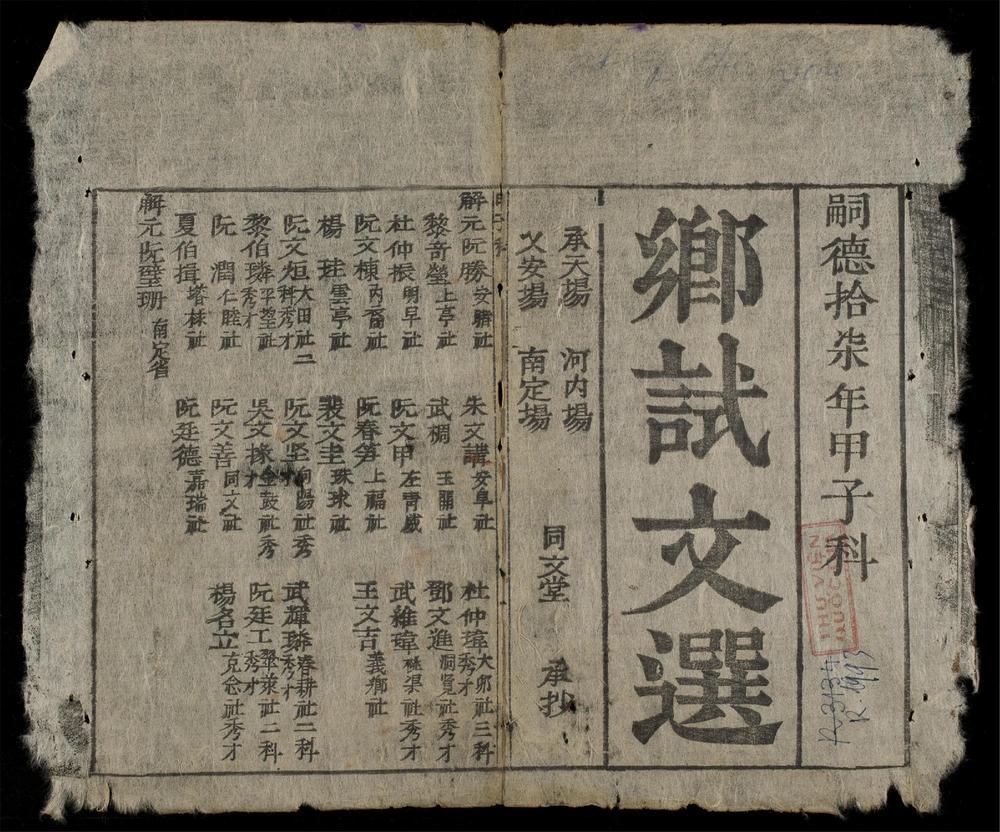 嗣德拾柒年甲子科
鄉試文選
承天場 河内場
乂安場 南定場
同文堂 承抄
甲子科
解元阮勝 朱文講安阜社 杜仲瑋大卯社三科秀才
黎奇瑩上亭社 武棡玉關社 鄧文進洞覽社秀才
杜仲振明早社 阮文甲左青威 武維瑋社秀才
阮文棟内裔社 阮春笋上福社 王文吉義鄉社
楊珪雲亭社 裴文圭珠球社
阮文烜大田社二科秀才 阮文坚向陽社秀才 武輝璘春耕社二科秀才
黎伯璘平望社秀才 吳文掾金鼓社秀才 阮廷工翠萊社二科秀才
阮潤仁睦社 阮文善同文社 楊名立克念社秀才
夏伯揖塔林社 阮廷德嘉瑞社
解元阮璧珊南定省
R.3134
R.1993